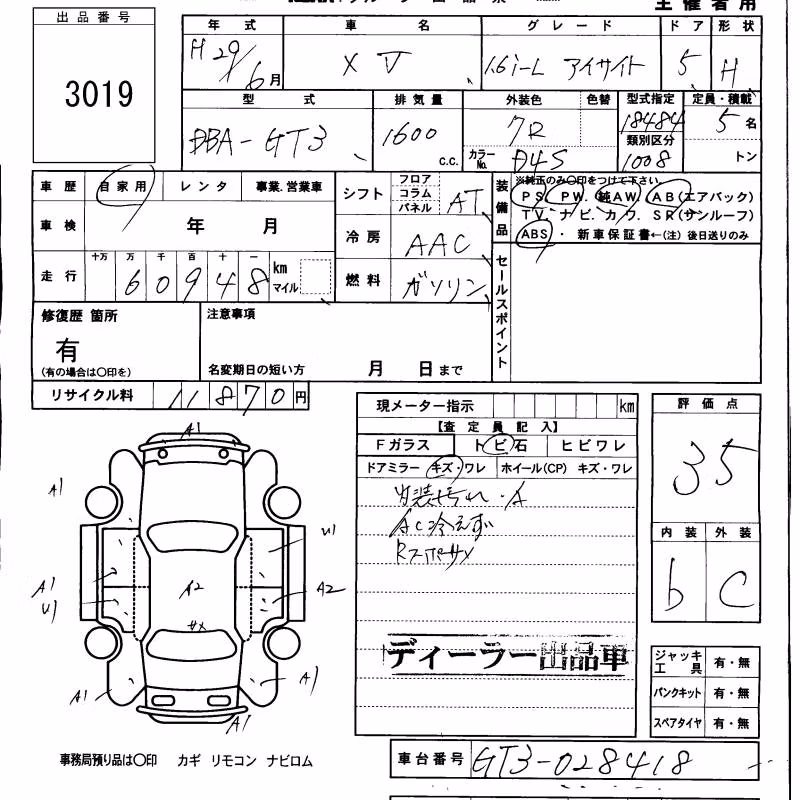 主催者用
出品番号
3019
年式 車名 グレード ドア 形状
H29/6月 XV 1.6i-L アイサイト 5 H
型式 排気量 外装色 色替 型式指定 定員・積載
DBA-GT3 1600 c.c. 7R 18484 5名
カラーNo. D4S 類別区分 1008 トン
車歴 自家用 レンタ 事業.営業車
シフト フロア コラム パネル AT
装備品 ※純正のみ〇印をつけて下さい。
PS. PW. 純AW. AB(エアバック)
TV. ナビ. カワ. SR(サンルーフ)
ABS. 新車保証書←(注) 後日送りのみ
車検 年 月
冷房 AAC
走行 十万 万 千 百 十 一
60948 km マイル
燃料 ガソリン
セールスポイント
修復歴 箇所
有
(有の場合は〇印を)
注意事項
名変期日の短い方 月 日まで
リサイクル料 11870円
現メーター指示 km
【査定員記入】
Fガラス トビ石 ヒビワレ
ドアミラー キズ・ワレ ホイール(CP) キズ・ワレ
内装汚れ・A
AC冷えず
ディーラー出品車
評価点
3.5
内装 外装
b C
A1
A1
U1
A1
U1
A2
A2
サメ
A1
A1
A1
ジャッキ工具 有・無
パンクキット 有・無
スペアタイヤ 有・無
事務局預り品は〇印 カギ リモコン ナビロム
車台番号 GT3-028418